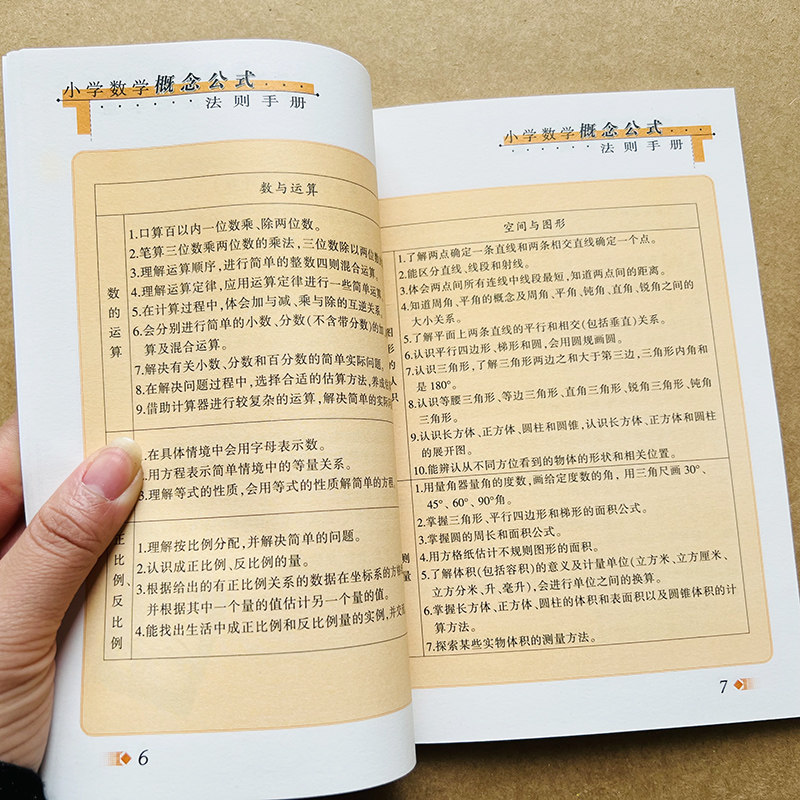 小学数学概念公式
法则手册
数与运算
数的运算
1.口算百以内一位数乘、除两位数。
2.笔算三位数乘两位数的乘法,三位数除以两位数的
3.理解运算顺序,进行简单的整数四则混合运算
4.理解运算定律,应用运算定律进行一些简单运算
5.在计算过程中,体会加与减、乘与除的互逆关系
6.会分别进行简单的小数、分数(不含带分数)的加
算及混合运算。
7.解决有关小数、分数和百分数的简单实际问题
8.在解决问题过程中,选择合适的估算方法,养成
9.借助计算器进行较复杂的运算,解决简单的实际
.在具体情境中会用字母表示数。
.用方程表示简单情境中的等量关系。
3.理解等式的性质,会用等式的性质解简单的方程
正比例、反比例
1.理解按比例分配,并解决简单的问题。
2.认识成正比例、反比例的量。
3.根据给出的有正比例关系的数据在坐标系的方
并根据其中一个量的值估计另一个量的值。
4.能找出生活中成正比例和反比例量的实例,并交
6
小学数学概念公式
法则手册
空间与图形
1.了解两点确定一条直线和两条相交直线确定一个点。
2.能区分直线、线段和射线。
3.体会两点间所有连线中线段最短,知道两点间的距离。
4.知道周角、平角的概念及周角、平角、钝角、直角、锐角之间的
大小关系。
5.了解平面上两条直线的平行和相交(包括垂直)关系。
6.认识平行四边形、梯形和圆,会用圆规画圆。
7.认识三角形,了解三角形两边之和大于第三边,三角形内角和
是180°。
8.认识等腰三角形、等边三角形、直角三角形、锐角三角形、钝角
三角形。
9.认识长方体、正方体、圆柱和圆锥,认识长方体、正方体和圆柱
的展开图。
10.能辨认从不同方位看到的物体的形状和相关位置。
测量
1.用量角器量角的度数,画给定度数的角,用三角尺画30°、
45°、60°、90°角。
2.掌握三角形、平行四边形和梯形的面积公式。
3.掌握圆的周长和面积公式。
4.用方格纸估计不规则图形的面积。
5.了解体积(包括容积)的意义及计量单位(立方米、立方厘米、
立方分米、升、毫升),会进行单位之间的换算。
6.掌握长方体、正方体、圆柱的体积和表面积以及圆锥体积的计
算方法。
7.探索某些实物体积的测量方法。
7